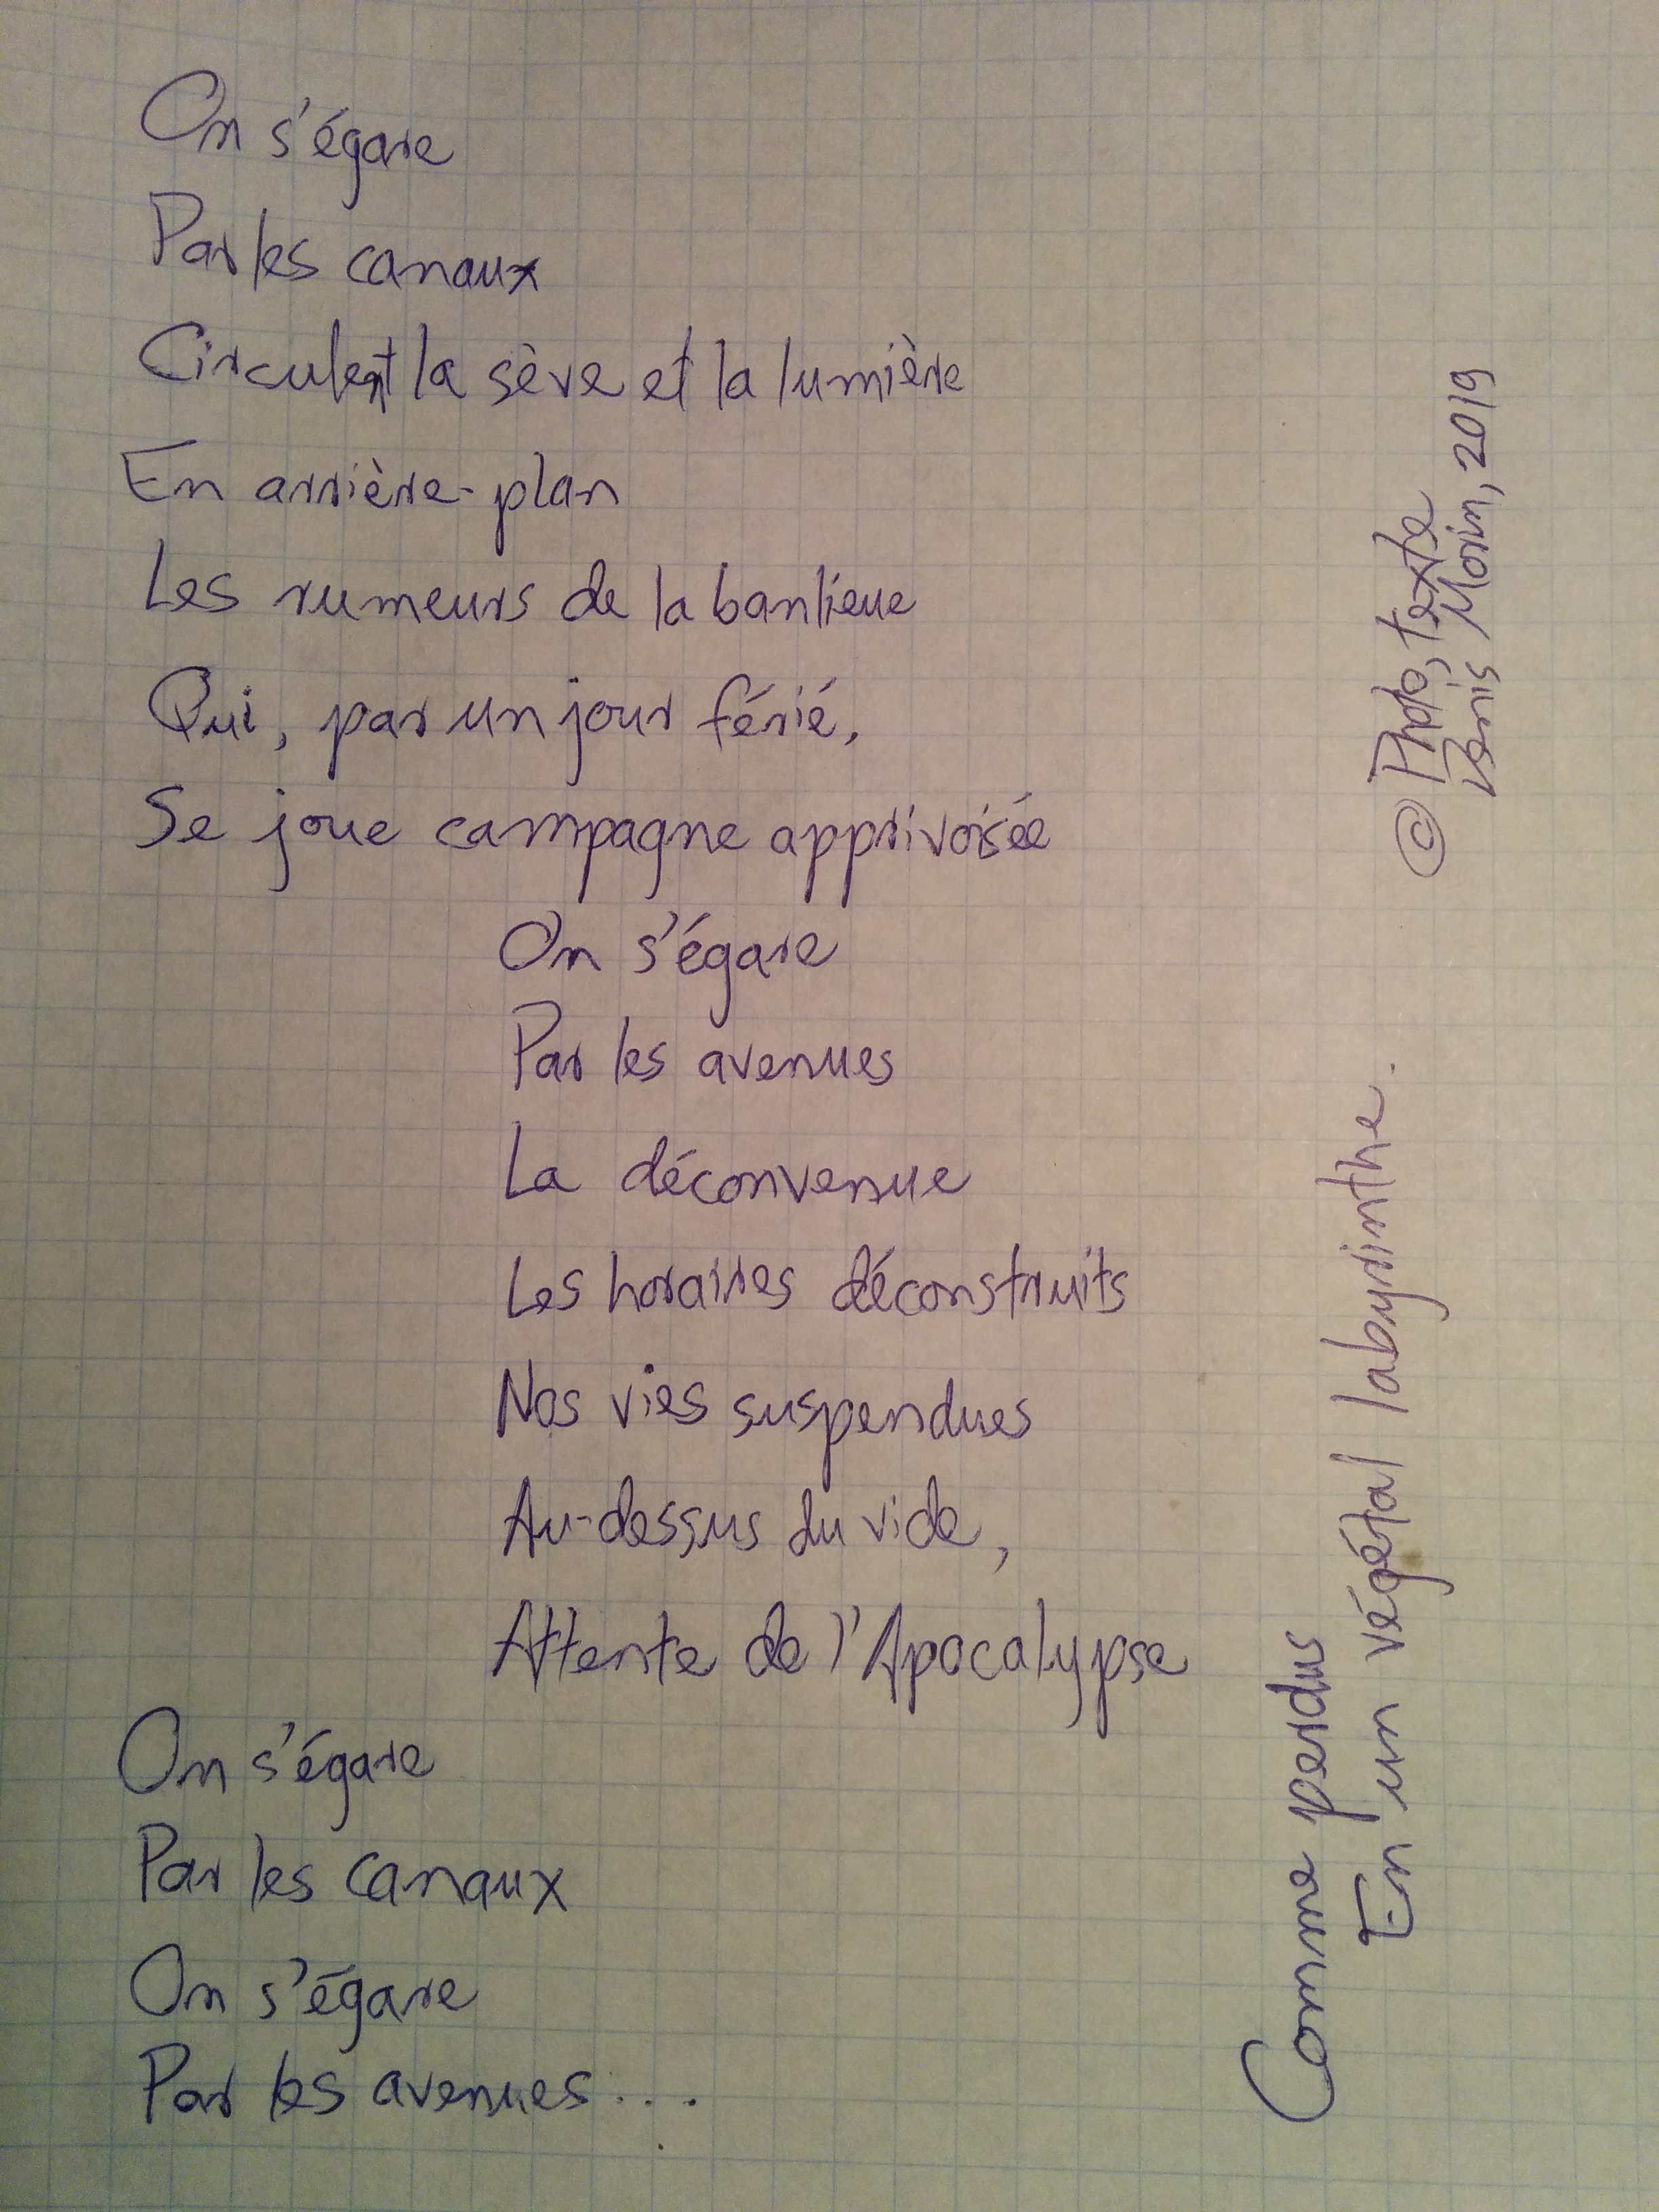 On s'égare
Par les canaux
Circulent la sève et la lumière
En arrière-plan
Les rumeurs de la banlieue
Qui, par un jour férié,
Se joue campagne apprivoisée
On s'égare
Par les avenues
La déconvenue
Les horaires déconstruits
Nos vies suspendues
Au-dessus du vide,
Attente de l'Apocalypse
On s'égare
Par les canaux
On s'égare
Par les avenues...
Comme perdus
En un végétal labyrinthe.
© Photo, texte
Denis Morin, 2019